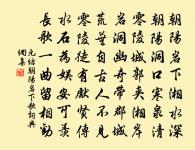 朝陽巖下湘水深
朝陽洞口寒泉清
零陵城郭夾湘岸
巖洞幽奇帶郡城
荒蕪自古人不見
零陵徒有先賢傳
水石為娛安可羨
長歌一曲留相勸
元結朝陽巖下歌詞典網集